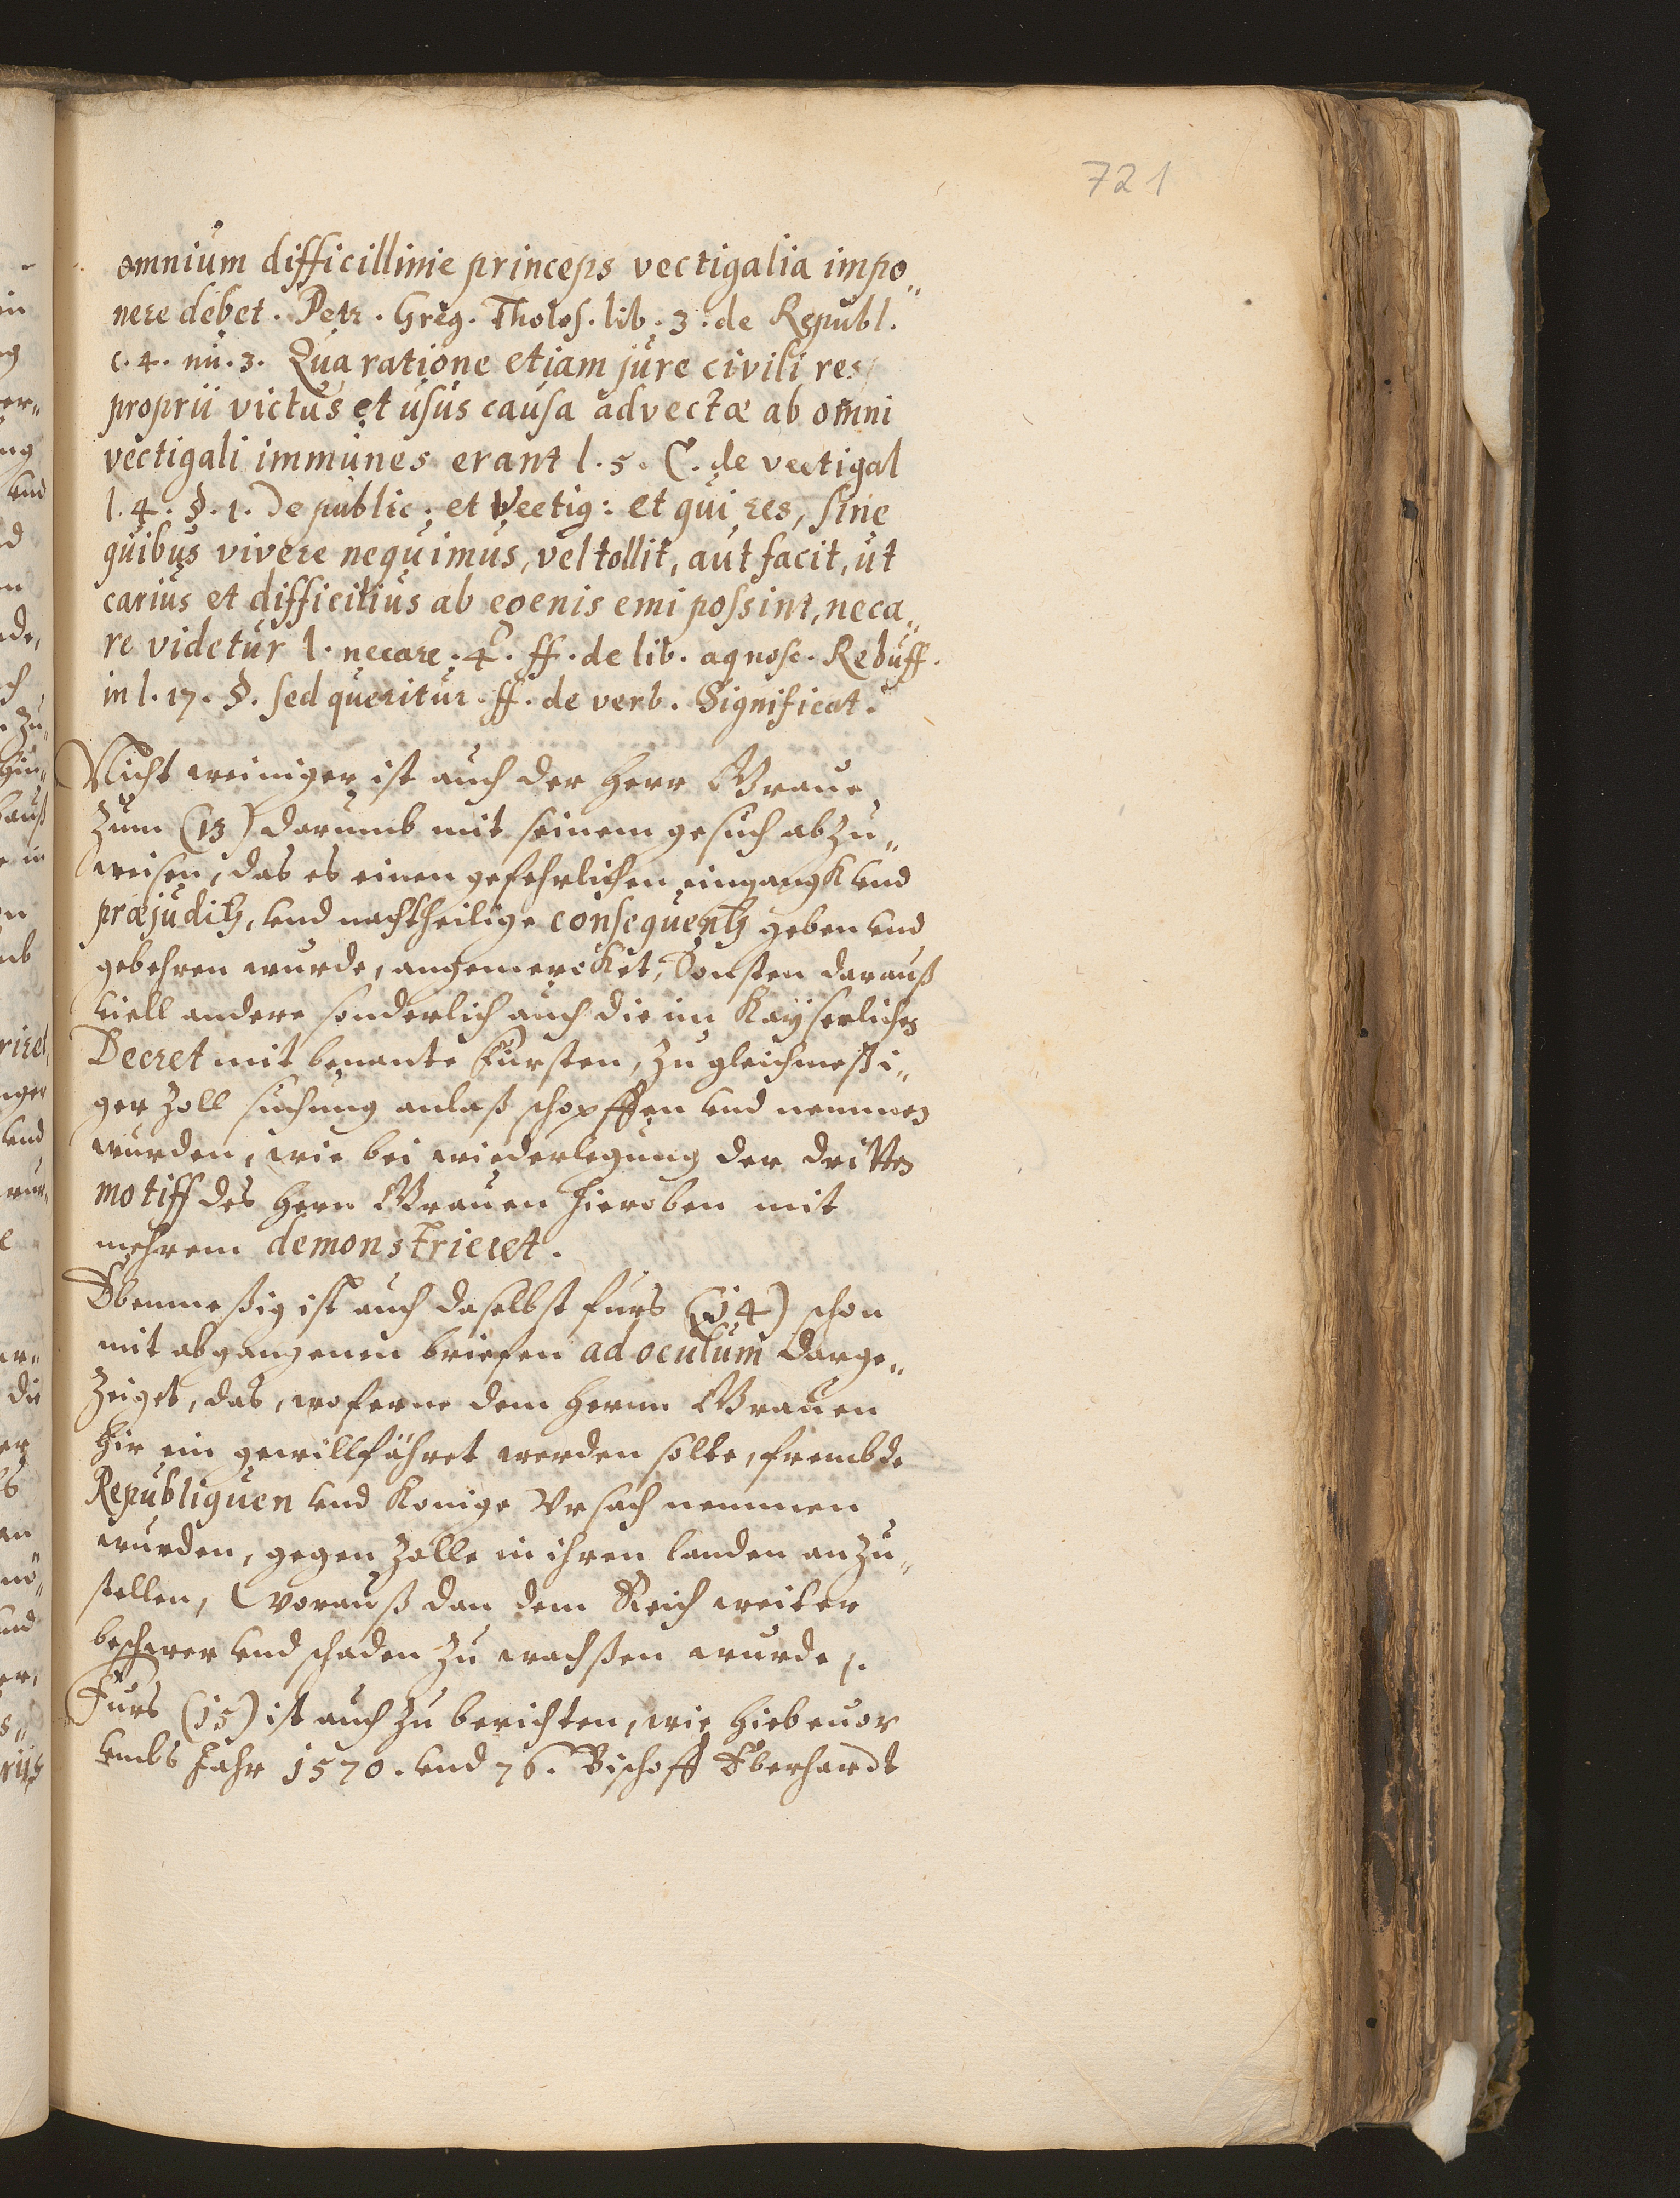 721
omnium difficillime princeps vectigalia impo„
nere debet. Petr. Greg. Tholos. lib. 3. de Republ.
c. 4. nu. 3. Qua ratione etiam jure civili res
proprii victus et usus causa advectæ ab omni
vectigali immunes erant l. 5. C. de vectigal
l. 4. §. 1. De public: et Vectig: et qui res, sine
quibus vivere nequimus, vel tollit, aut facit, ut
carius et difficilius ab egenis emi possint, neca„
re videtur l. necare. 4. ff. de lib. agnosc. Rebuff.
in l. 17. §. sed queritur. ff. de verb. Significat.
Nicht weiniger ist auch der Herr Graue
Zum (13) darumb mit seinem gesuch abzu„
weisen, das es einen gefehrlichen eingangk vnd
præjuditz, vnd nachtheilige consequentz geben vnd
gebehren wurde, angemercket, Sonsten darauß
viell andere sonderlich auch die im Kayserlichen
Decret mit benante Fursten, zu gleichmeßi„
ger Zoll suchung anlaß schopffen vnd nemmen
wurden, wie bei wiederlegung der dritten
motiff des Hern Grauen hieroben mit
mehrem demonstrieret.
Ebenmeßig ist auch daselbst furs (14) schon
mit abgangenen briefen ad oculum darge„
Zeiget, das, woferne dem Hernn Grauen
hir ein gewillfähret werden solte, frembde
Republiquen vnd Konige Vrsach nemmen
wurden, gegen Zolle in ihren landen anzu„
stellen, Worauß dan dem Reich weiter
beschwer vnd schaden zu wachßen wurde.
Furs (15) ist auch zu berichten, wie hiebeuor
vmbs Jahr 1570. vnd 76. Bischoff Eberhardt